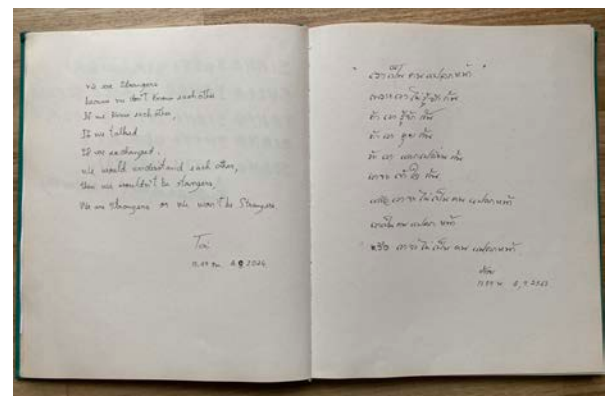 We are Strangers
because we don't know each other.
If we know each other,
If we talked
If we exchanged,
we would understand each other,
then we wouldn't be strangers,
We are Strangers or we won't be Strangers
Toi
11.49 น.
เราเป็นคนแปลกหน้า
เพราะเราไม่รู้จักกัน
ถ้า เรา รู้จัก กัน
ถ้า เรา คุย กัน
ถ้า เรา แลกเปลี่ยน กัน
เราจะ เข้าใจ กัน
และ เราจะ ไม่เป็น คน แปลกหน้า
เราเป็น คน แปลก หน้า
หรือ เราจะ ไม่เป็น คน แปลกหน้า
ต้อย